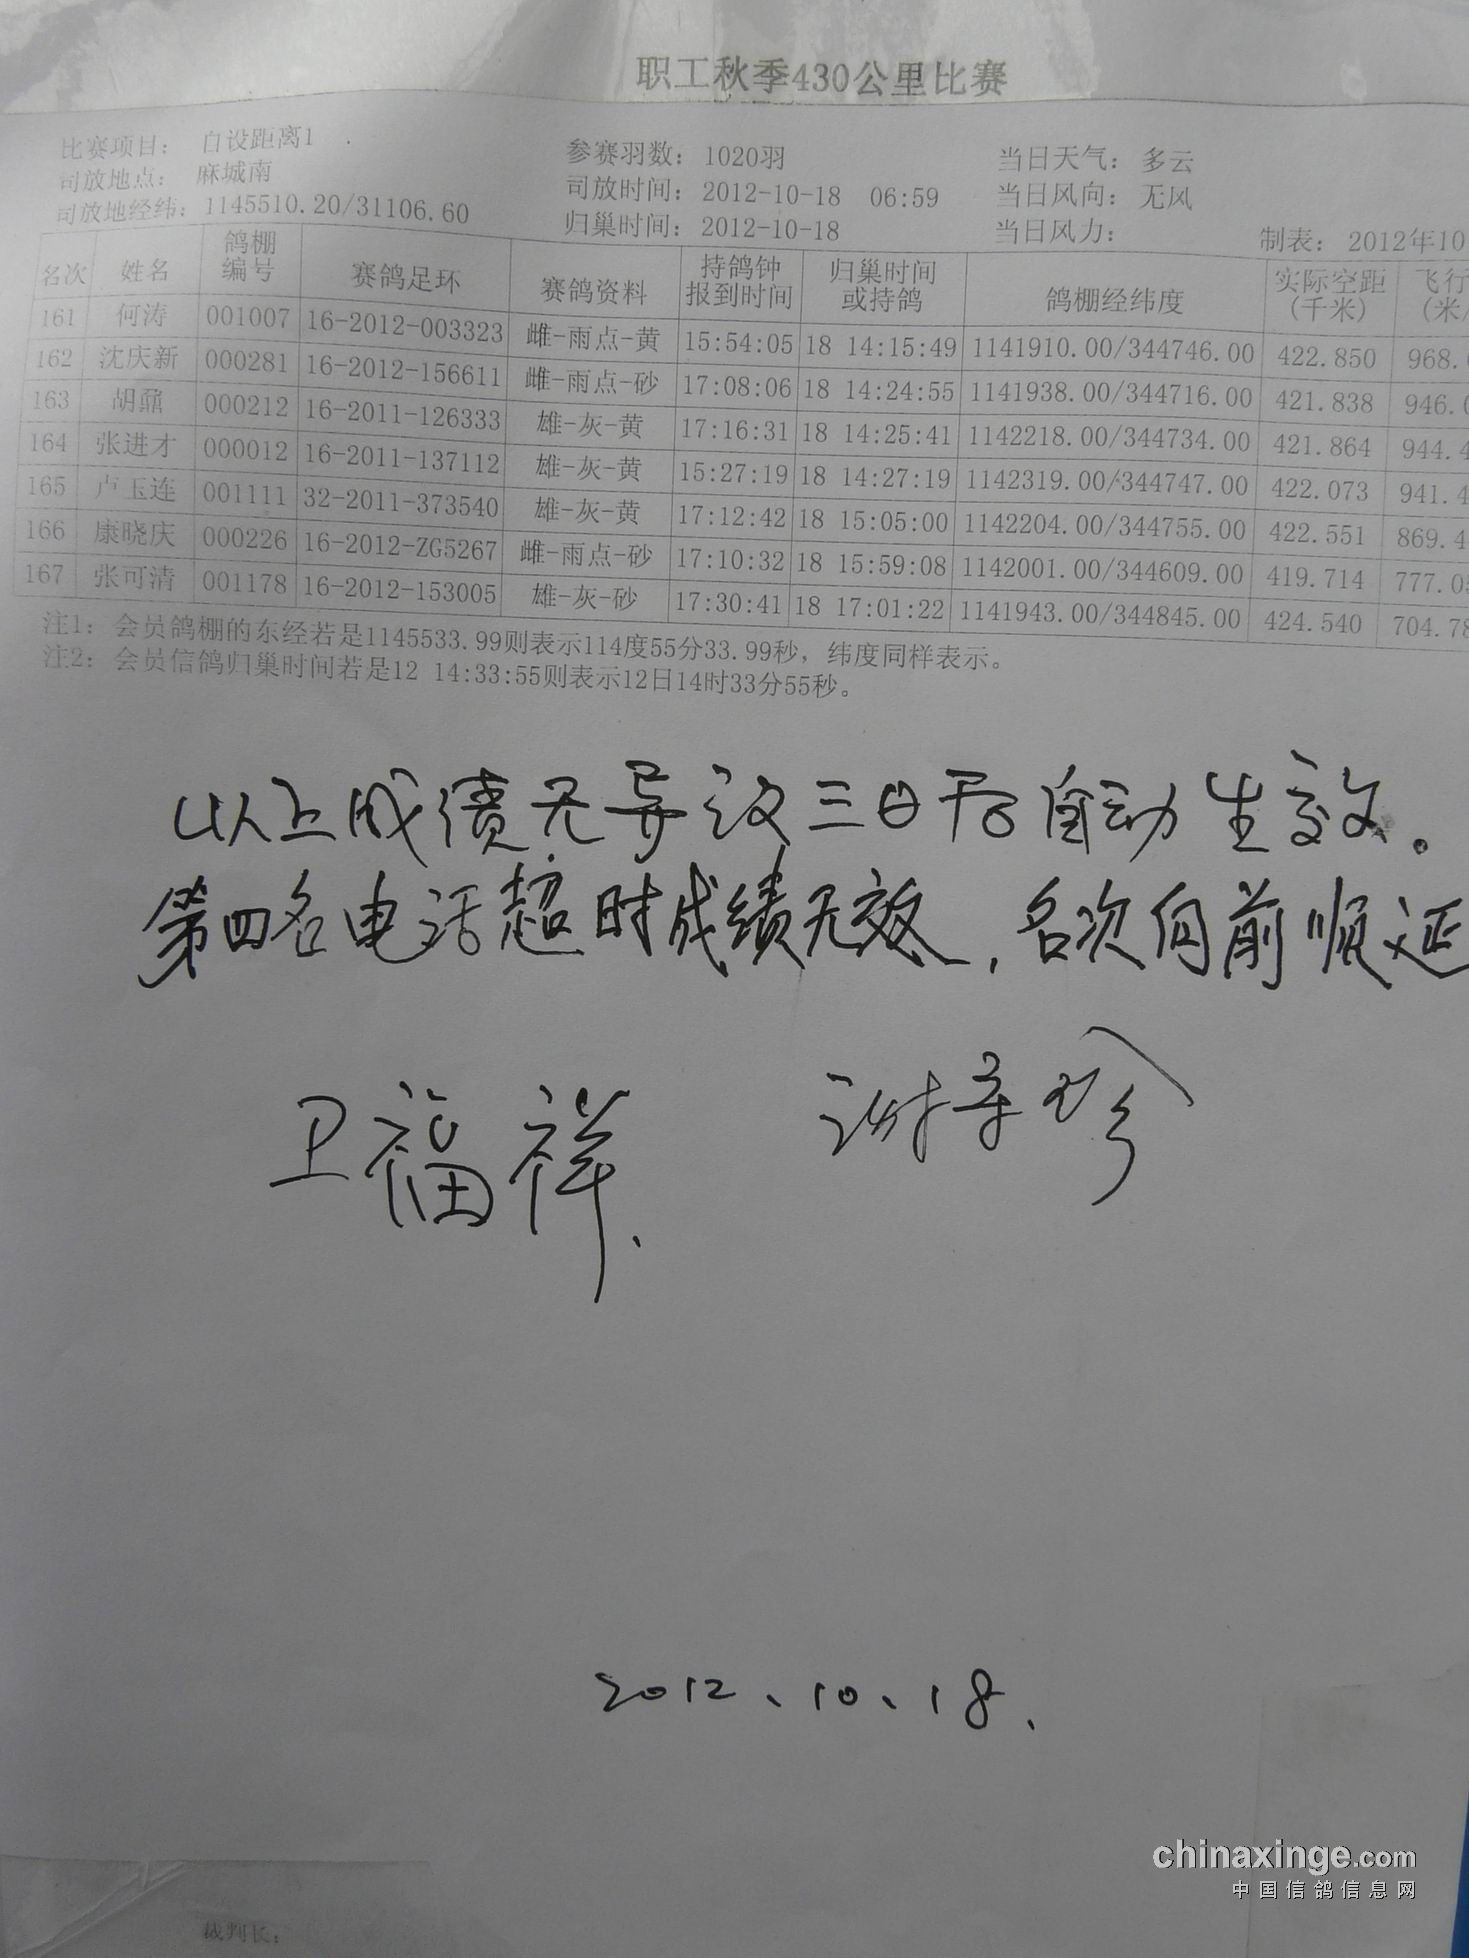 职工秋季430公里比赛
比赛项目: 自设距离1 参赛羽数: 1020羽 当日天气: 多云
司放地点: 麻城南 司放时间: 2012-10-18 06:59 当日风向: 无风
司放地经纬: 1145510.20/31106.60 归巢时间: 2012-10-18 当日风力: 制表: 2012年10
名次 姓名 鸽棚编号 赛鸽足环 赛鸽资料 持鸽钟报到时间 归巢时间或持鸽 鸽棚经纬度 实际空距(千米) 飞行 (米/
161 何涛 001007 16-2012-003323 雌-雨点-黄 15:54:05 18 14:15:49 1141910.00/344746.00 422.850 968.
162 沈庆新 000281 16-2012-156611 雌-雨点-砂 17:08:06 18 14:24:55 1141938.00/344716.00 421.838 946.0
163 胡鼐 000212 16-2011-126333 雄-灰-黄 17:16:31 18 14:25:41 1142218.00/344734.00 421.864 944.4
164 张进才 000012 16-2011-137112 雄-灰-黄 15:27:19 18 14:27:19 1142319.00/344747.00 422.073 941.4
165 卢玉连 001111 32-2011-373540 雄-灰-黄 17:12:42 18 15:05:00 1142204.00/344755.00 422.551 869.4
166 康晓庆 000226 16-2012-ZG5267 雌-雨点-砂 17:10:32 18 15:59:08 1142001.00/344609.00 419.714 777.05
167 张可清 001178 16-2012-153005 雄-灰-砂 17:30:41 18 17:01:22 1141943.00/344845.00 424.540 704.78
注1: 会员鸽棚的东经若是1145533.99则表示114度55分33.99秒，纬度同样表示。
注2: 会员信鸽归巢时间若是12 14:33:55则表示12日14时33分55秒。
以上成绩无异议三日后自动生效。
第四名电话超时成绩无效，名次向前顺延
卫福祥. 谢 珍
2012、10、18、
chinaxinge.com
中国信鸽信息网
裁判长: